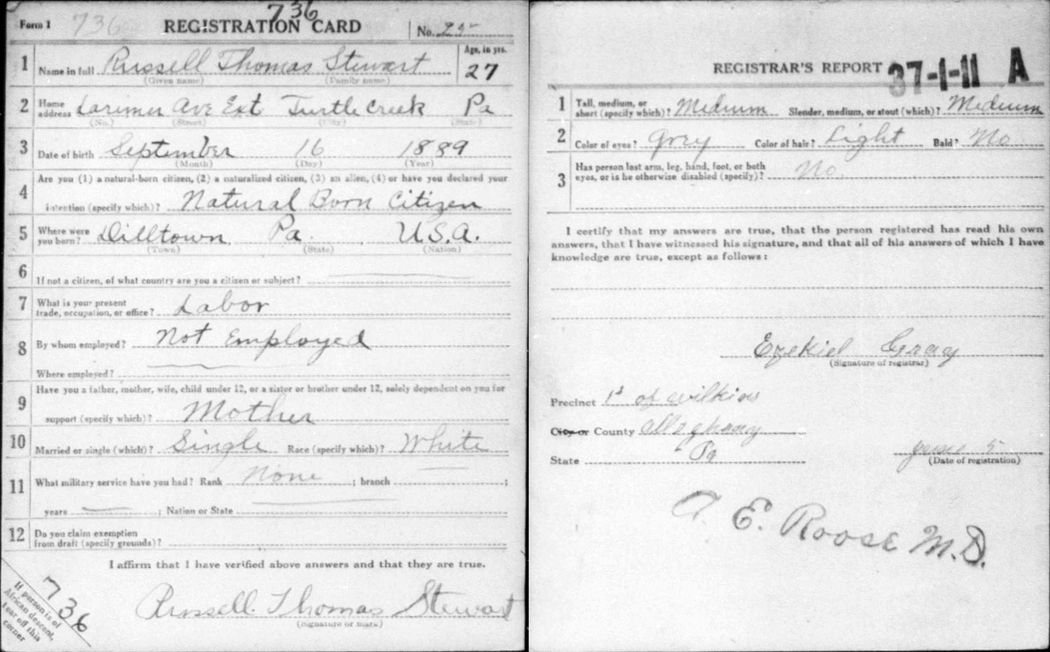 736
Form 1 736 REGISTRATION CARD No. 25
1 Name in full Russell Thomas Stewart Age, in yrs. 27
(Given name) (Family name)
2 Home address Larimer Ave Ext Turtle Creek Pa
(No.) (Street) (City) (State)
3 Date of birth September 16 1889
(Month) (Day) (Year)
4 Are you (1) a natural-born citizen, (2) a naturalized citizen, (3) an alien, (4) or have you declared your
intention (specify which)? Natural Born Citizen
5 Where were you born? Dilltown Pa. U.S.A.
(Town) (State) (Nation)
6 If not a citizen, of what country are you a citizen or subject?
7 What is your present trade, occupation, or office? Labor
8 By whom employed? Not Employed
Where employed?
9 Have you a father, mother, wife, child under 12, or a sister or brother under 12, solely dependent on you for
support (specify which)? Mother
10 Married or single (which)? Single Race (specify which)? White
11 What military service have you had? Rank None ; branch ;
years ; Nation or State
12 Do you claim exemption from draft (specify grounds)?
I affirm that I have verified above answers and that they are true.
Russell Thomas Stewart
(Signature or mark)
736
If person is of
African descent,
tear off this
corner
REGISTRAR'S REPORT 37-1-11 A
1 Tall, medium, or short (specify which)? Medium Slender, medium, or stout (which)? Medium
2 Color of eyes? Grey Color of hair? Light Bald? No
3 Has person lost arm, leg, hand, foot, or both eyes, or is he otherwise disabled (specify)? No.
I certify that my answers are true, that the person registered has read his own
answers, that I have witnessed his signature, and that all of his answers of which I have
knowledge are true, except as follows:
Ezekiel Gray
(Signature of registrar)
Precinct 1st of Wilkins
City or County Allegheny
State Pa June 5
(Date of registration)
A E. Roose M.D.